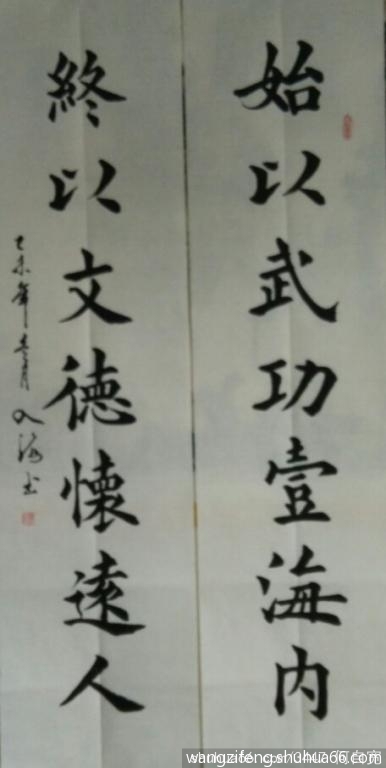 始以武功壹海内
終以文德懷遠人
乙未年春月
wangzifeng.shuhua66.com